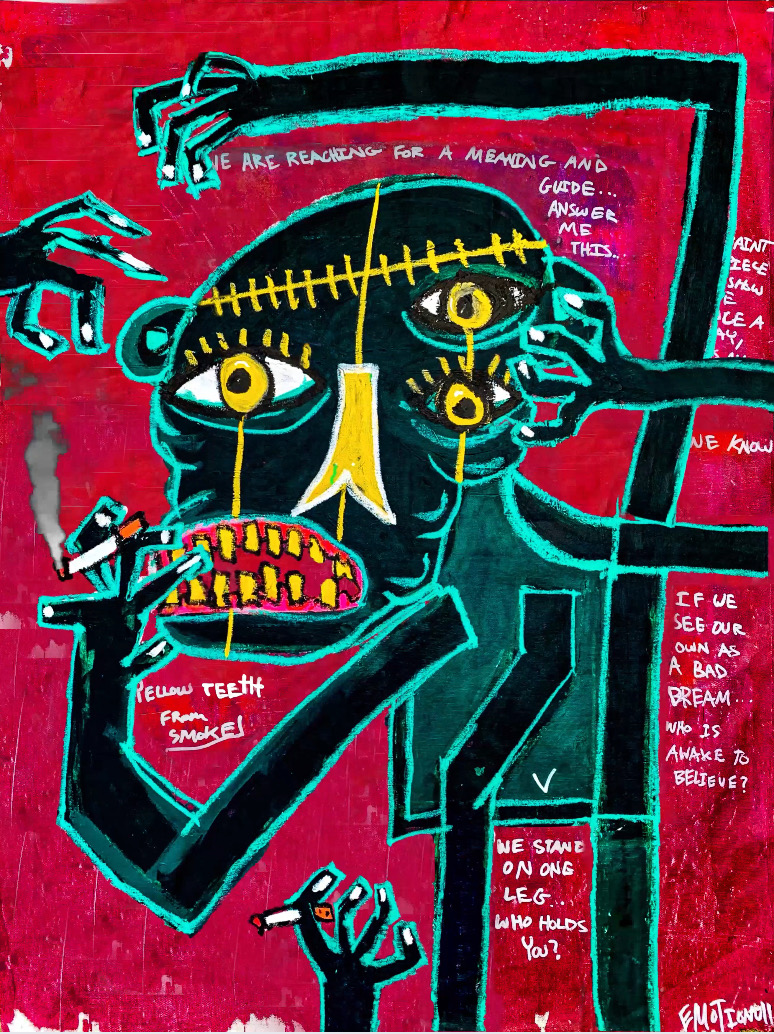 WE ARE REACHING FOR A MEANING AND
GUIDE...
ANSWER
ME
THIS..
AINT
SHOW
WE KNOW
IF WE
SEE OUR
OWN AS
A BAD
DREAM...
WHO IS
AWAKE TO
BELIEVE?
YELLOW TEETH
FROM
SMOKE!
V
WE STAND
ON ONE
LEG..
WHO HOLDS
YOU?